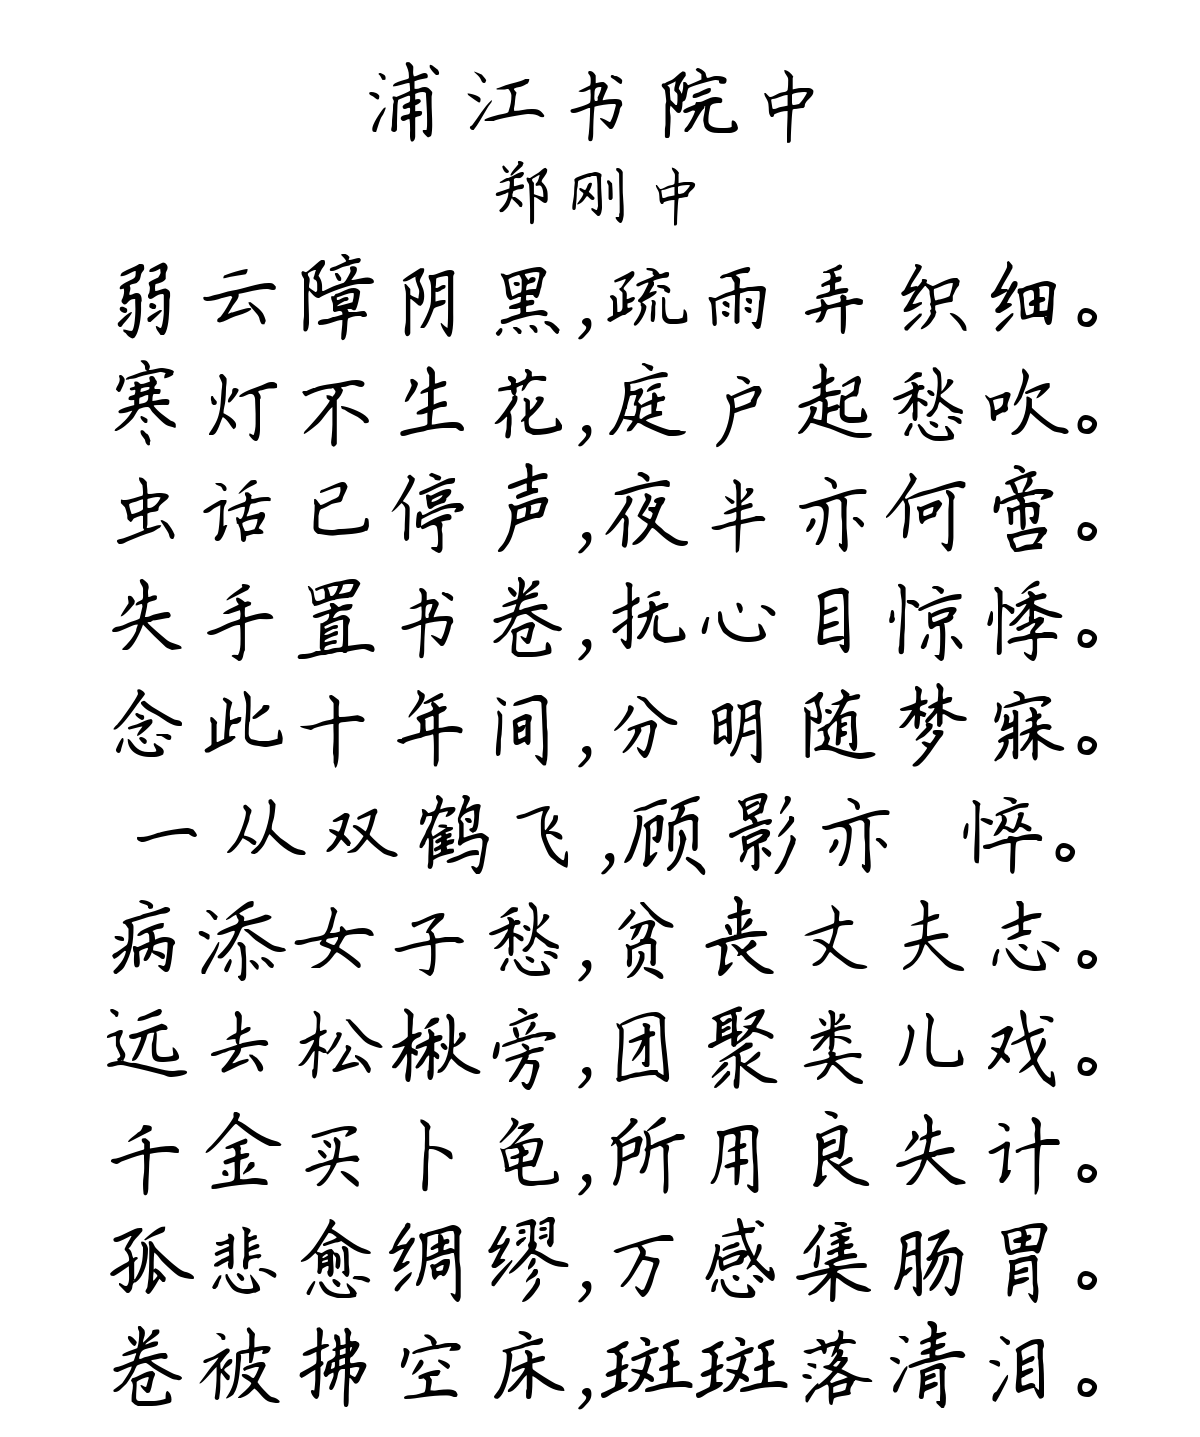 浦江书院中
郑刚中
弱云障阴黑,疏雨弄织细。
寒灯不生花,庭户起愁吹。
虫话已停声,夜半亦何啻。
失手置书卷,抚心目惊悸。
念此十年间,分明随梦寐。
一从双鹤飞,顾影亦 悴。
病添女子愁,贫丧丈夫志。
远去松楸旁,团聚类儿戏。
千金买卜龟,所用良失计。
孤悲愈绸缪,万感集肠胃。
卷被拂空床,斑斑落清泪。